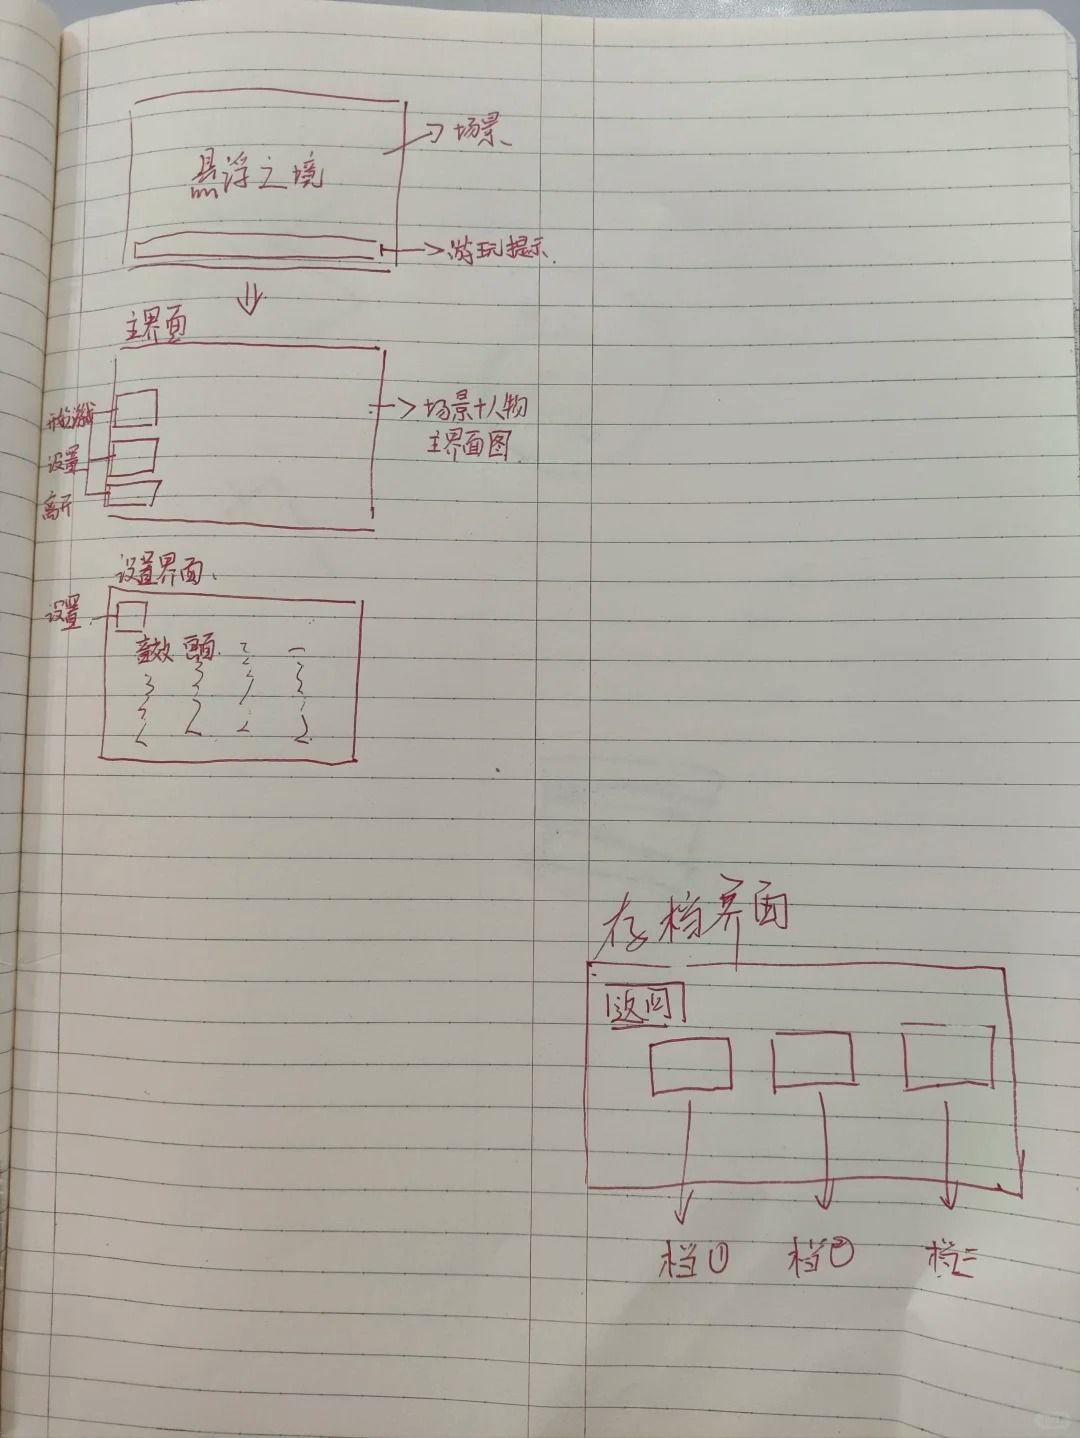 场景
悬浮之境
游玩提示
主界面
开始游戏
设置
离开
场景+人物
主界面图
设置界面
设置
音效 画面
存档界面
返回
档① 档② 档三